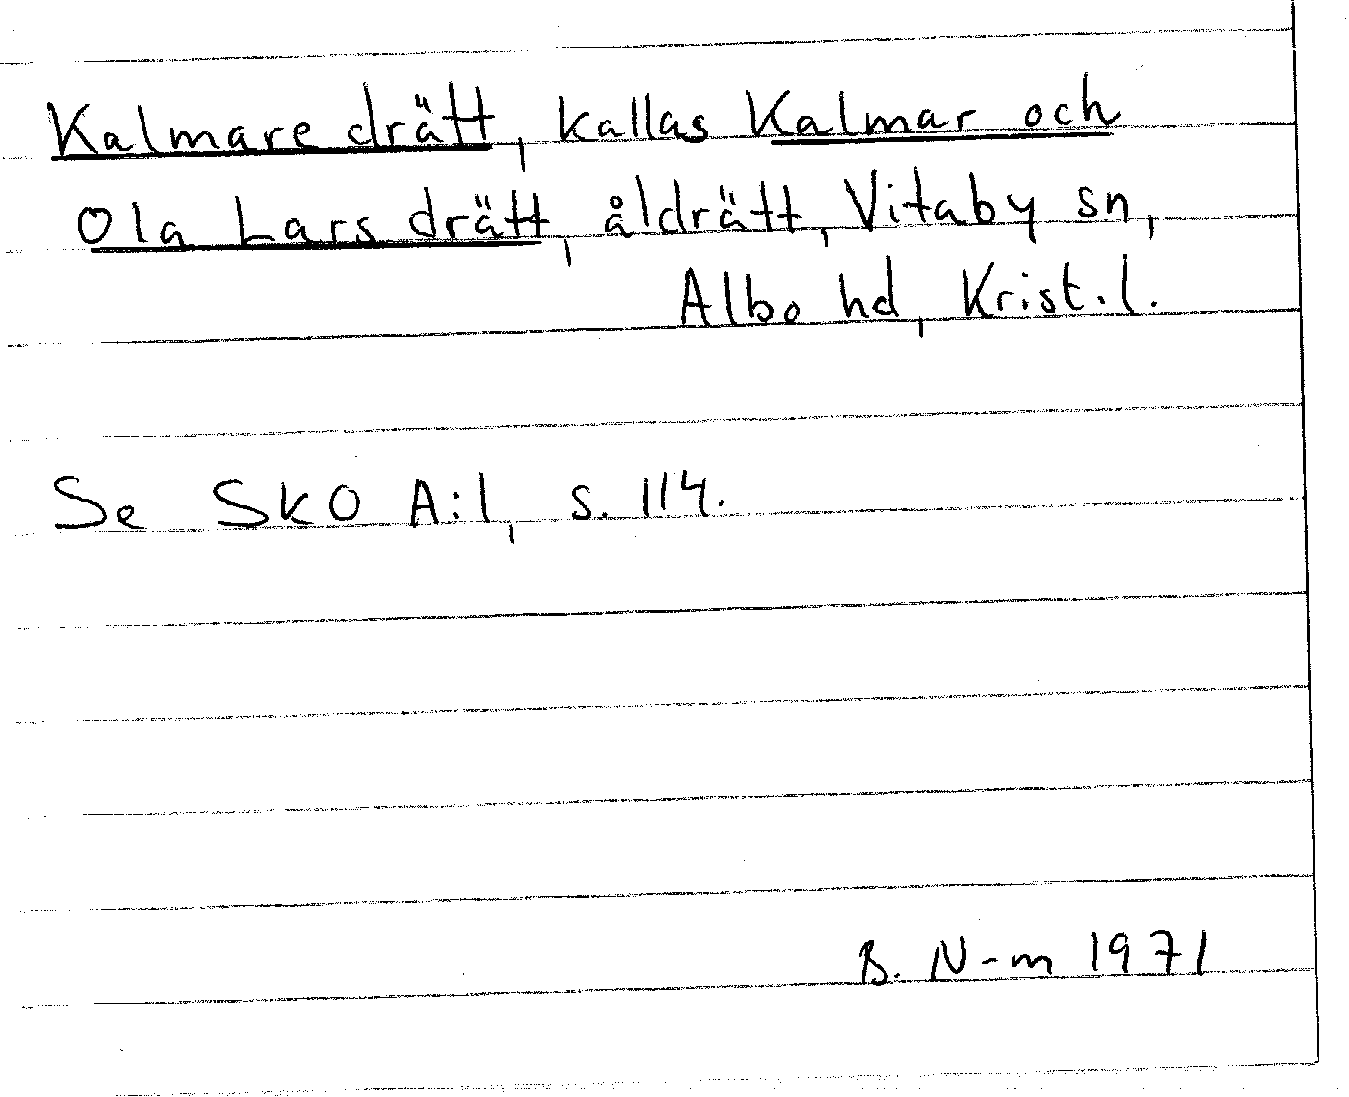 Kalmare drätt, kallas Kalmar och
Ola Lars drätt, åldrätt, Vitaby sn,
Albo hd, Krist.l.
Se SkO A:1, s. 114.
B. N-m 1971